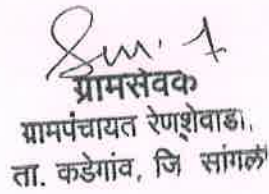 ग्रामसेवक
ग्रामपंचायत रेणशेवाडा,
ता. कडेगांव, जि सांगली